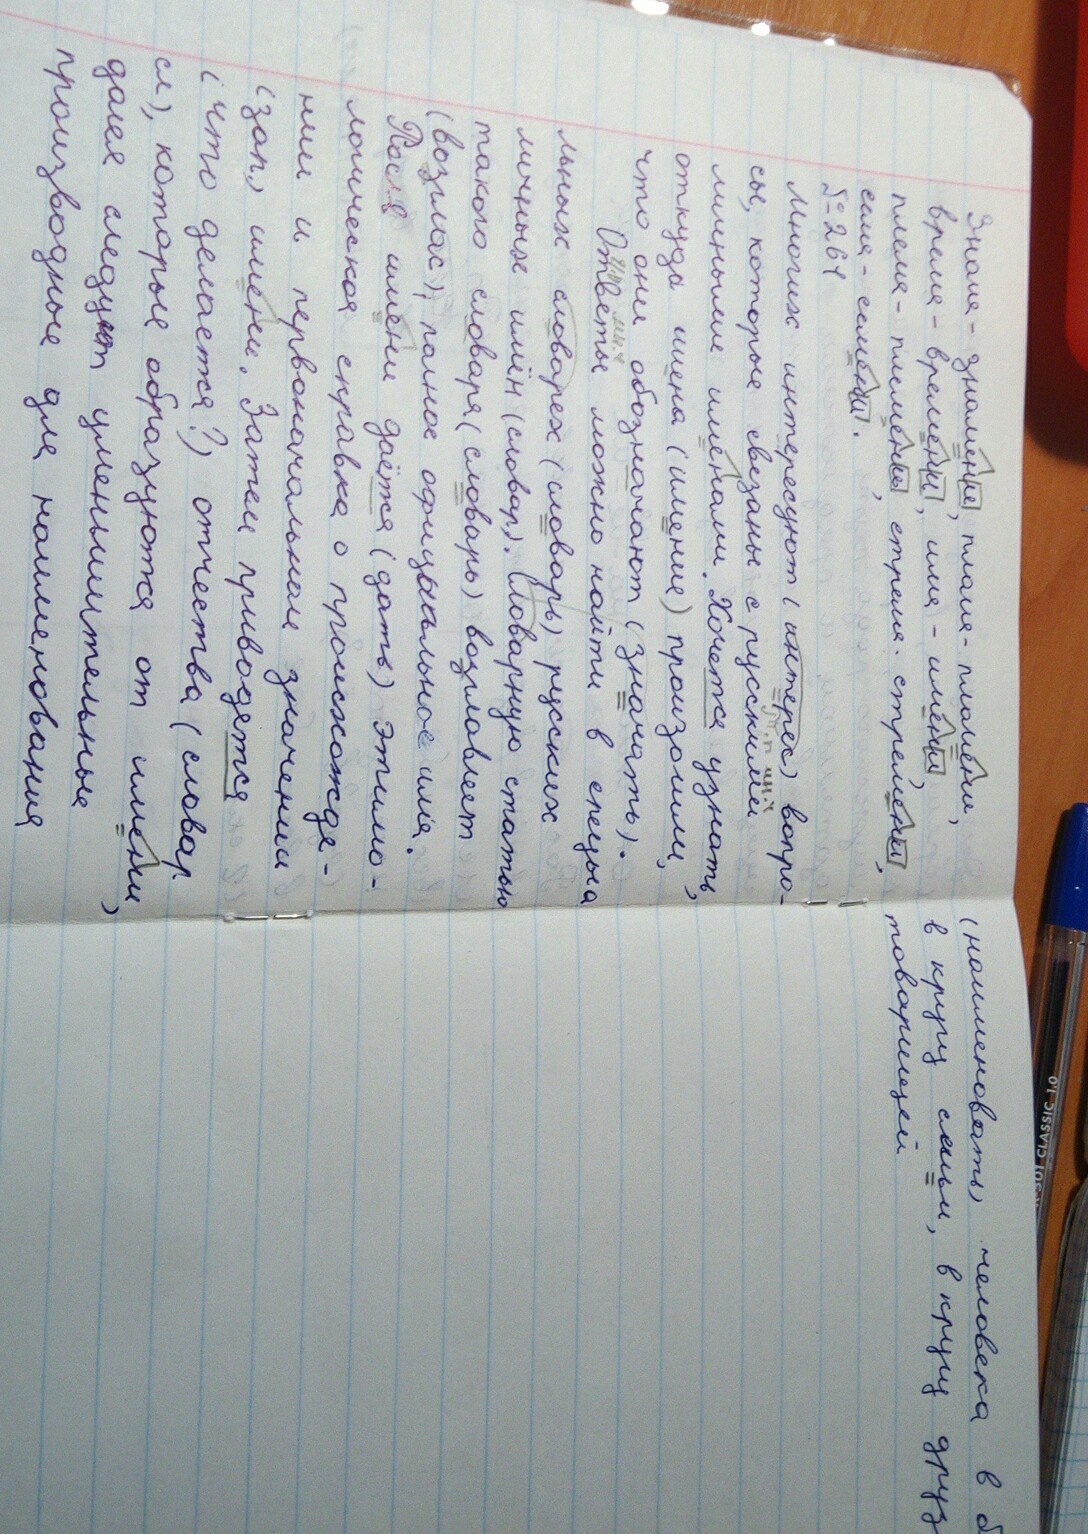 Знамя - знамёна, пламя - пламени,
время - времени, имя - имени,
племя - племени, стремя - стремени,
семя - семени.
№ 264
Многих интересуют (интерес) вопро-
сы, которые свезаны с рускими
личными именами. Хочется узнать,
откуда имена (имение) произошли,
что они обозначают (значать).
Ответы можно найти в специа
льных словарех (словарь) руских
личных имён (словар). Словарную статью
такого словаря (словарь) возгловяет
(возглас), полное официальное имя.
После имени даётся (дать) этимо-
логическая справка о происхожде-
нии и первоначальном значении
(зап.) имени. Затем приводется
(что делается?) отчества (словар
сл), которые образуются от имени,
далея следуют уменьшительные
производные для наименования
(наименовать) человека в б
в кругу семьи, в кругу друз
товарищей
CLASSIC 1.0